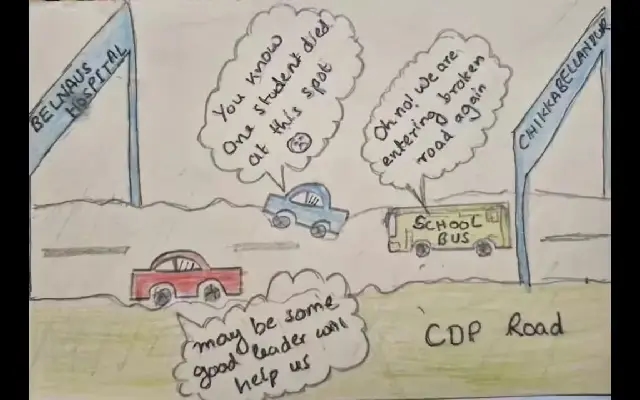 BELNAUS
HOSPITAL
You know
one student died
at this spot
Oh no! we are
entering broken
road again
CHIKKABELLANDUR
SCHOOL
BUS
may be some
good leader will
help us
CDP Road